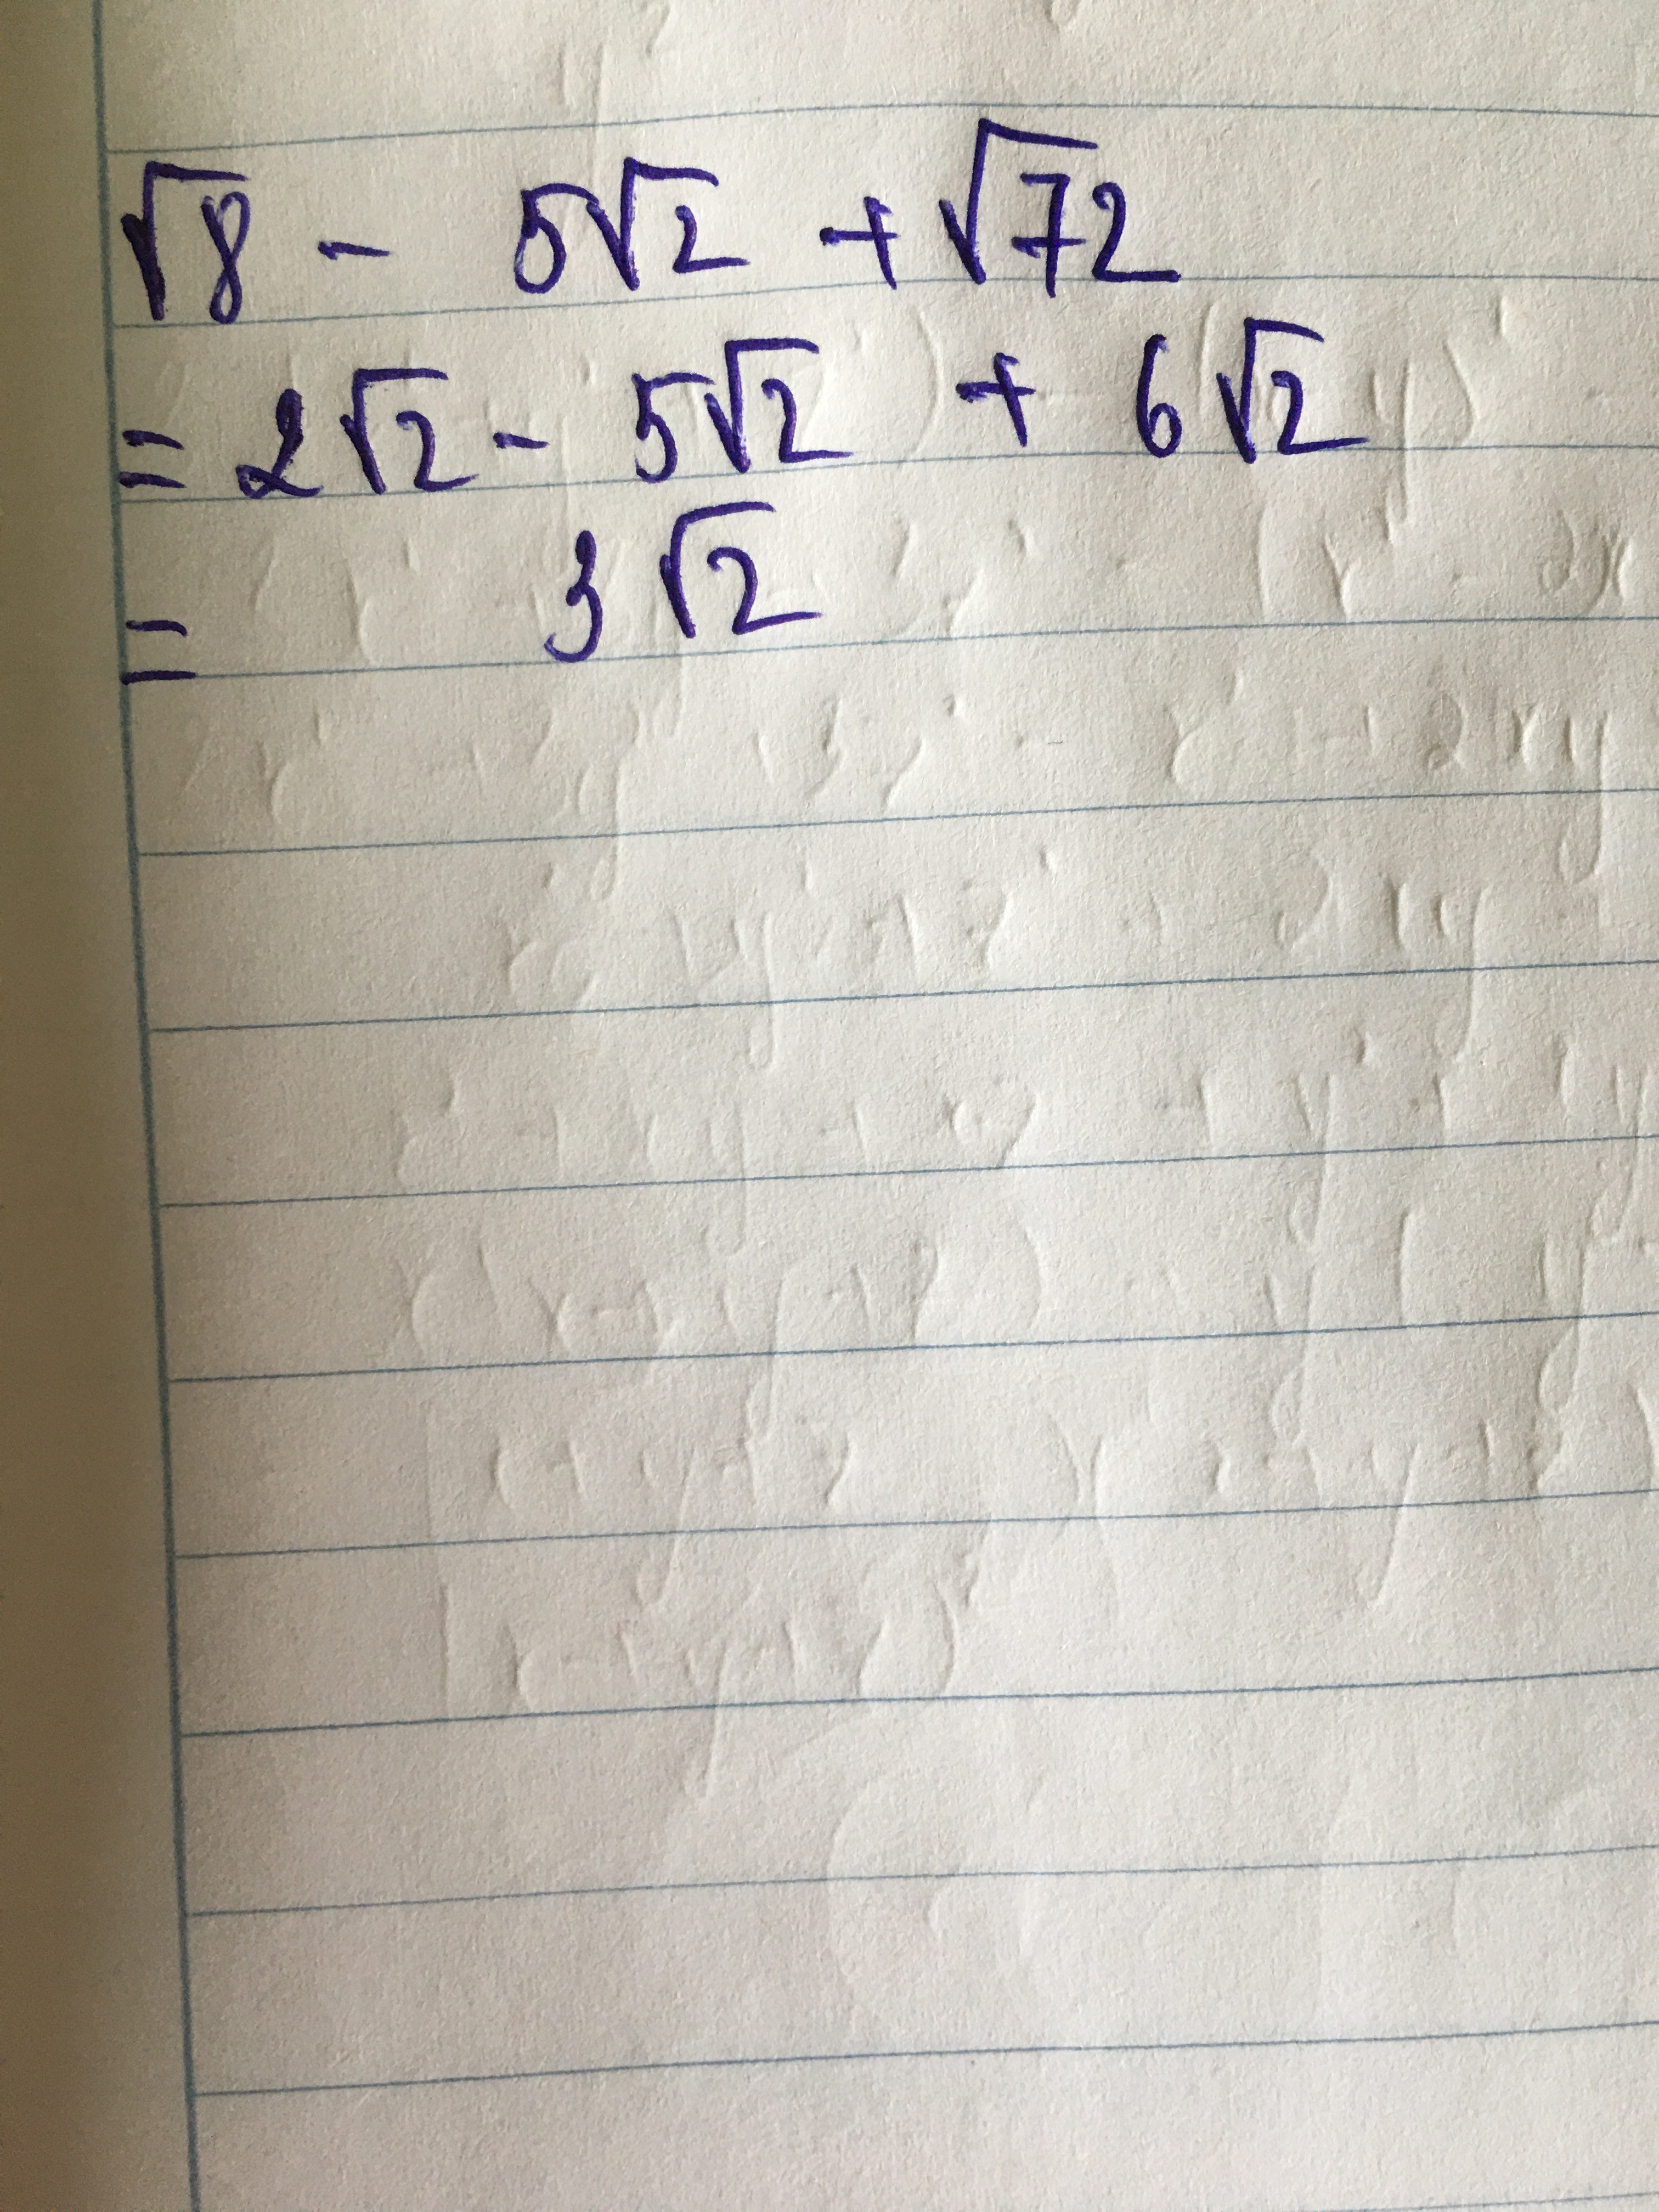 √8 - 5√2 + √72
= 2√2 - 5√2 + 6√2
= 3√2